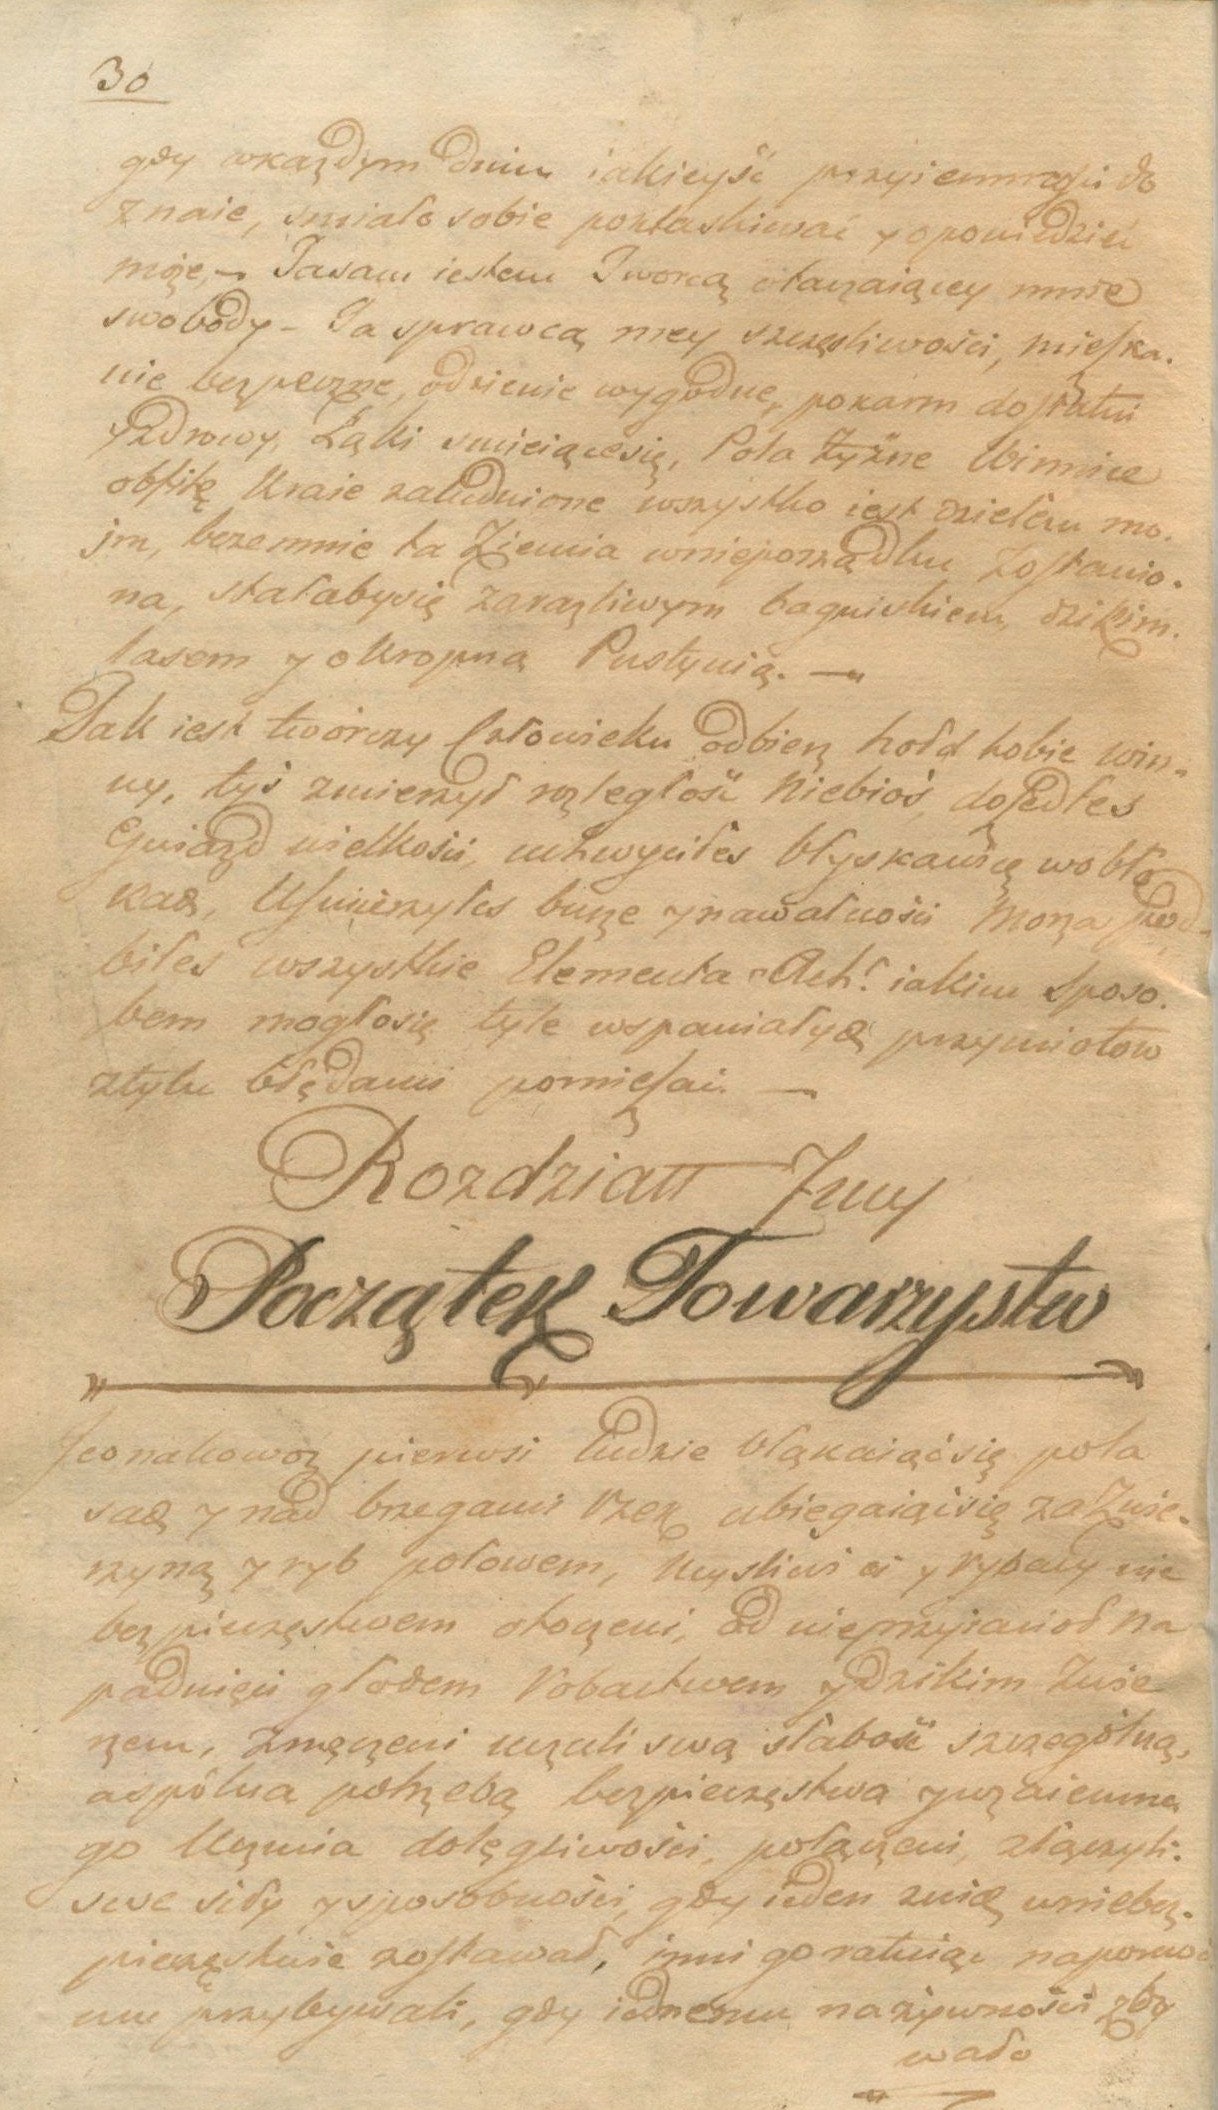 30
gdy wkażdym dniu iakieyść przyiemności do
znaie, smiało sobie poklaskiwać y opowiedzieć
może, – Ja sam iestem Tworcą otaczaiącey mnie
swobody – Ja sprawcą mey szczęśliwości, mieszka-
nie bezpieczne, odzienie wygodne, pokarm dostatni
y zdrowy. Łąki smieiącesię, Pola żyżne Winnice
obfite Kraie zaludnione wszystko iest dziełem mo-
jm, bezemnie ta Ziemia wnieporządku zostawio-
na, stałabysię zaraźliwym bagniskiem, dzikim
lasem y okropną Pustynią. —
Tak iest twórczy Człowieku odbierz hołd tobie win-
ny, tyś zmierzył rozległość Niebios, doszedłes
Gwiazd wielkości, uchwyciłes błyskawicę wobło
kach, Usmierzyłes burze y nawałności Morza pod-
biłes wszystkie Elementa – Ach! iakim sposo-
bem mogłosię tyle wspaniałych przymiotow
ztylu błędami pomieszać. —
Rozdział 7my
Początek Towarzystw
Jednakowoż pierwsi ludzie błąkaiącsię po la
sach y nad brzegami rzek ubiegaiącsię za Zwie-
rzyną y ryb połowem, Myśliwi ci y rybacy nie
bezpieczęstwem otoczeni, od nieprzyiacioł na
padnięci głodem robactwem y dzikim zwie
rzem, zmęczeni uczuli swą słabość szczególną,
a spólna potrzebą bezpieczęstwa y wzaiemne
go Uczucia dolęgliwości, połączeni, złączyli
swe siły y sposobności, gdy ieden z nich wniebez-
pieczęstwie zostawał, inni go ratuiąc napomoc
mu przybywali, gdy iednemu nażywności zby
wało